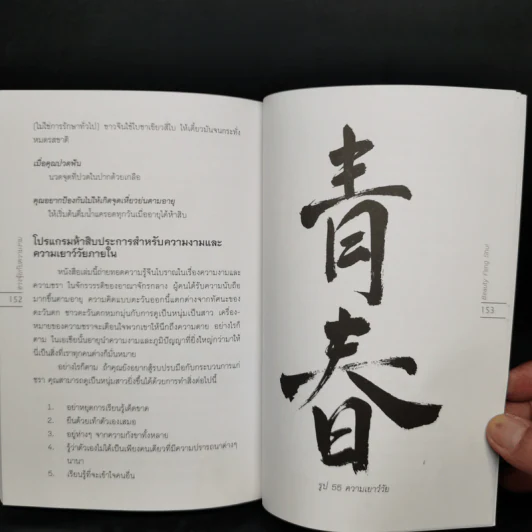 (ไม่ใช่การรักษาทั่วไป) ชาวจีนใช้ใบชาเขียวสีใบ ให้เคี้ยวมันจนกระทั่ง
หมดรสชาติ
เมื่อคุณปวดฟัน
นวดจุดที่ปวดในปากด้วยเกลือ
คุณอยากป้องกันไม่ให้เกิดจุดเหี่ยวย่นตามอายุ
ให้เริ่มต้นดื่มน้ำแครอตทุกวันเมื่ออายุได้ห้าสิบ
โปรแกรมห้าสิบประการสำหรับความงามและ
ความเยาว์วัยภายใน
หนังสือเล่มนี้ถ่ายทอดความรู้จีนโบราณในเรื่องความงามและ
ความชรา ในจักรวรรดิของอาณาจักรกลาง ผู้คนได้รับความนับถือ
มากขึ้นตามอายุ ความคิดแบบตะวันออกนี้แตกต่างจากทัศนะของ
ตะวันตก ชาวตะวันตกหมกมุ่นกับการดูเป็นหนุ่มเป็นสาว เครื่อง-
หมายของความชราจะเตือนใจพวกเขาให้นึกถึงความตาย อย่างไรก็
ตาม ในเอเชียนั้นอายุนำความงามและภูมิปัญญาที่ยิ่งใหญ่กว่ามาให้
นี่เป็นสิ่งที่เราทุกคนต่างก็มั่นหมาย
อย่างไรก็ตาม ถ้าคุณยังอยากสู้รบปรบมือกับกระบวนการแก่
ชรา คุณสามารถดูเป็นหนุ่มสาวยิ่งขึ้นได้ด้วยการทำสิ่งต่อไปนี้
1. อย่าหยุดการเรียนรู้เด็ดขาด
2. ยืนด้วยเท้าตัวเองเสมอ
3. อยู่ห่างๆ จากความกังขาทั้งหลาย
4. รู้ว่าตัวเองไม่ได้เป็นเพียงคนเดียวที่มีความปรารถนาต่างๆ
นานา
5. เรียนรู้ที่จะเข้าใจคนอื่น
152
青春
รูป 55 ความเยาว์วัย
Beauty Fang Shui
153